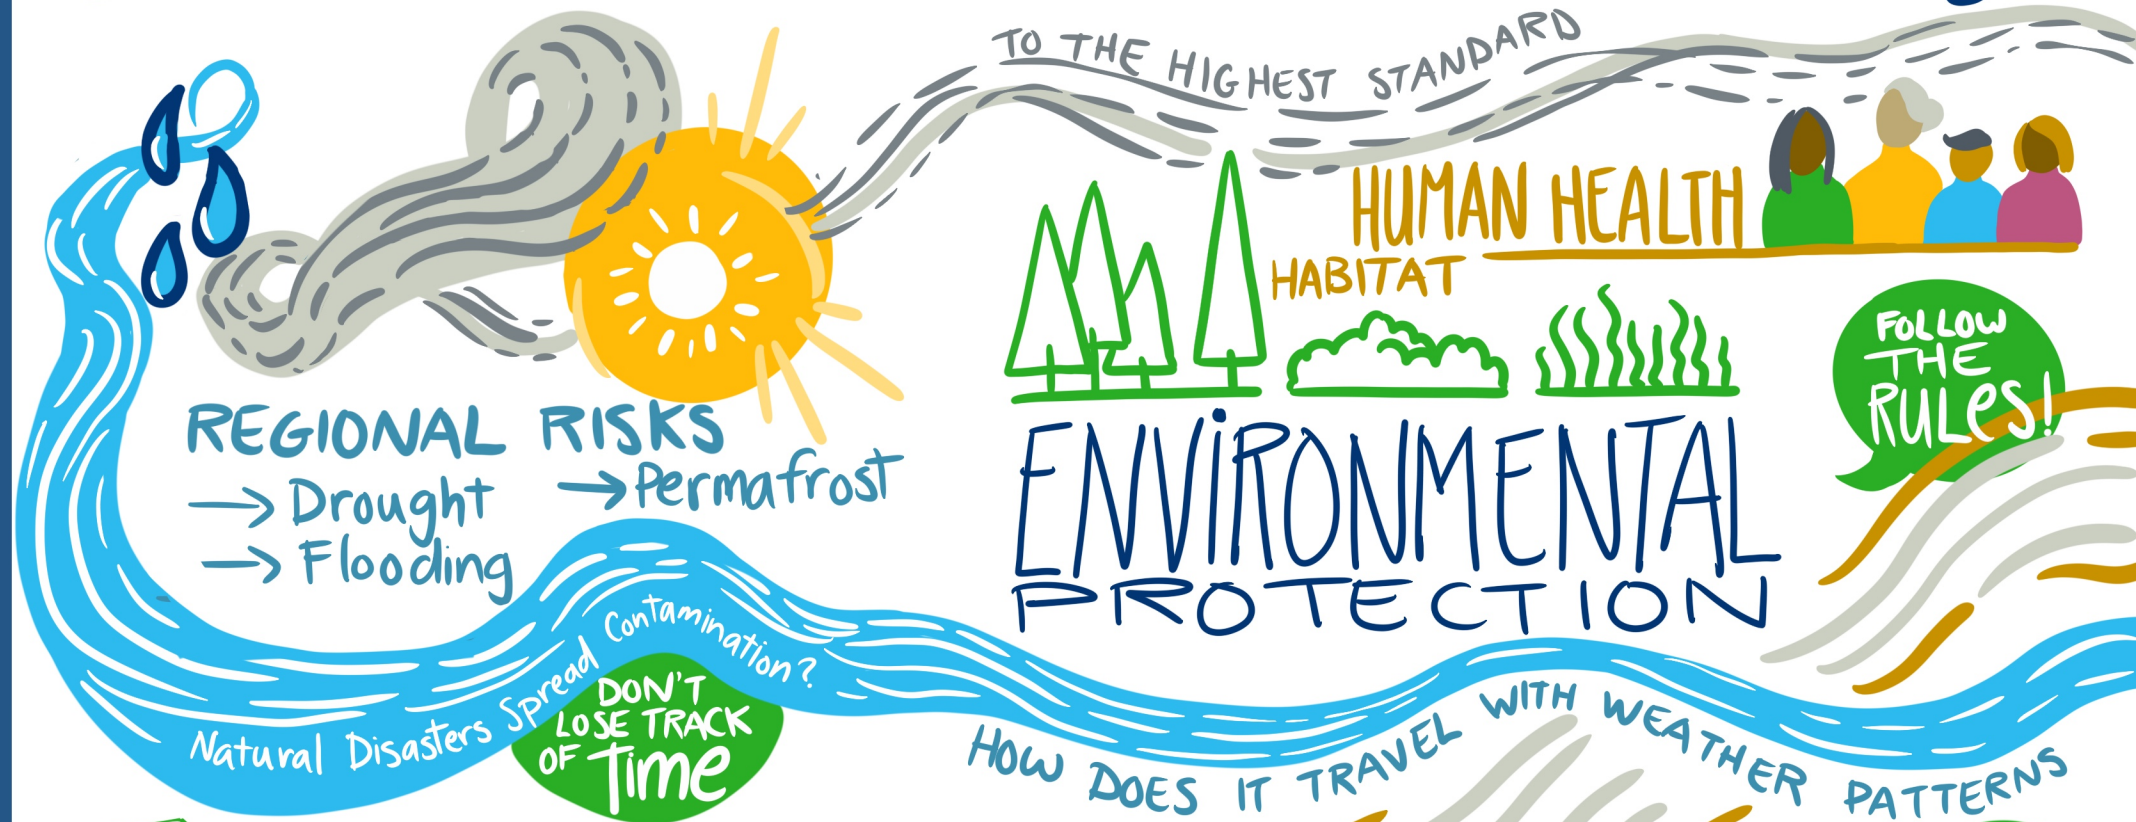 TO THE HIGHEST STANDARD
HUMAN HEALTH
HABITAT
FOLLOW
THE
RULes!
REGIONAL RISKS
→ Drought
→ Permafrost
→ Flooding
ENViRONMENTAL
PROTECTION
Natural Disasters Spread Contamination?
DON'T
LOSE TRACK
OF Time
HOW DOES IT TRAVEL WITH WEATHER PATTERNS